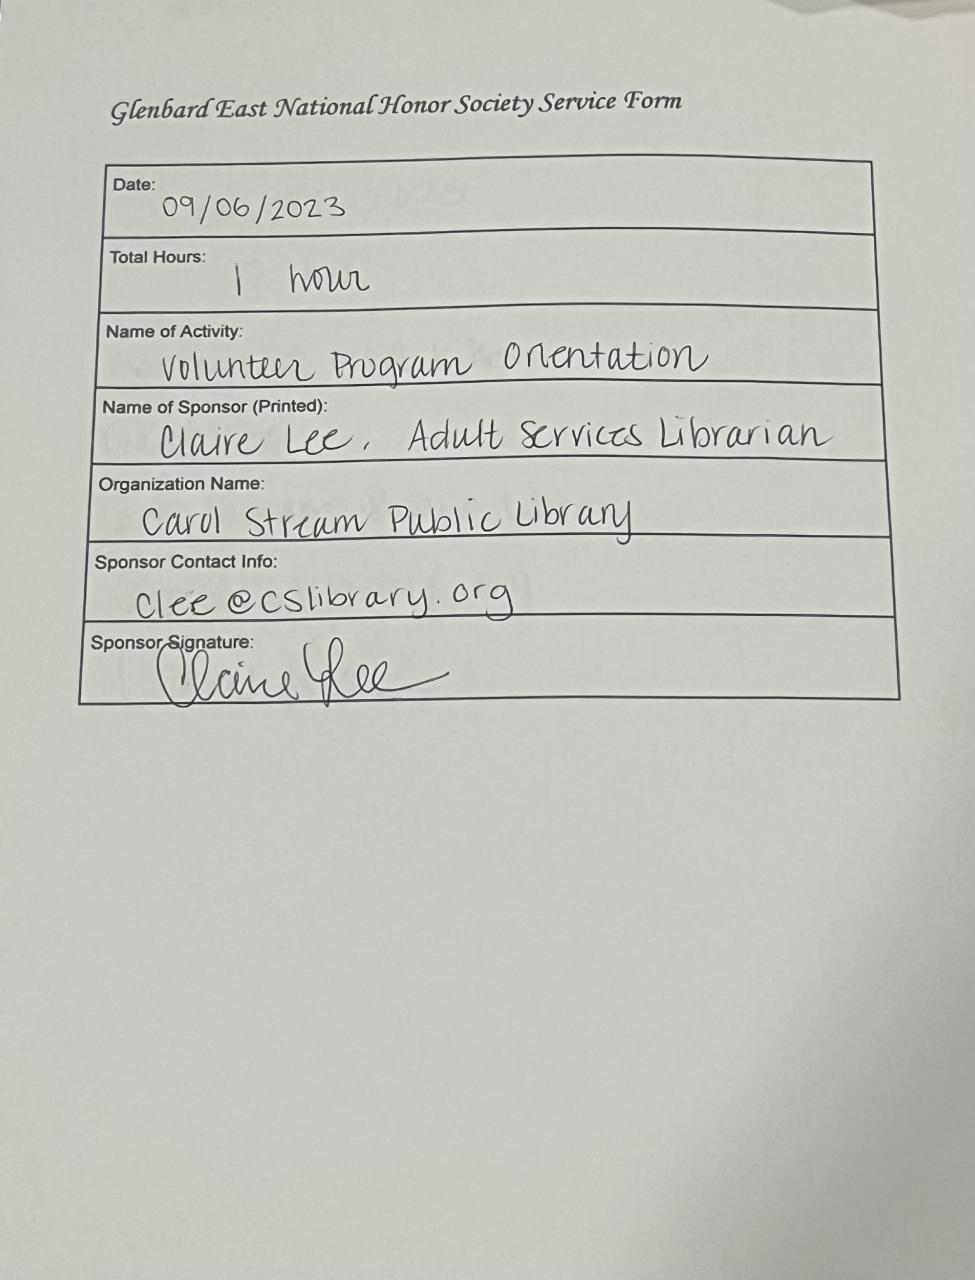 Glenbard East National Honor Society Service Form
Date:
09/06/2023
Total Hours:
1 hour
Name of Activity:
Volunteer Program Orientation
Name of Sponsor (Printed):
Claire Lee, Adult Services Librarian
Organization Name:
Carol Stream Public Library
Sponsor Contact Info:
clee@cslibrary.org
Sponsor Signature:
Claire Lee